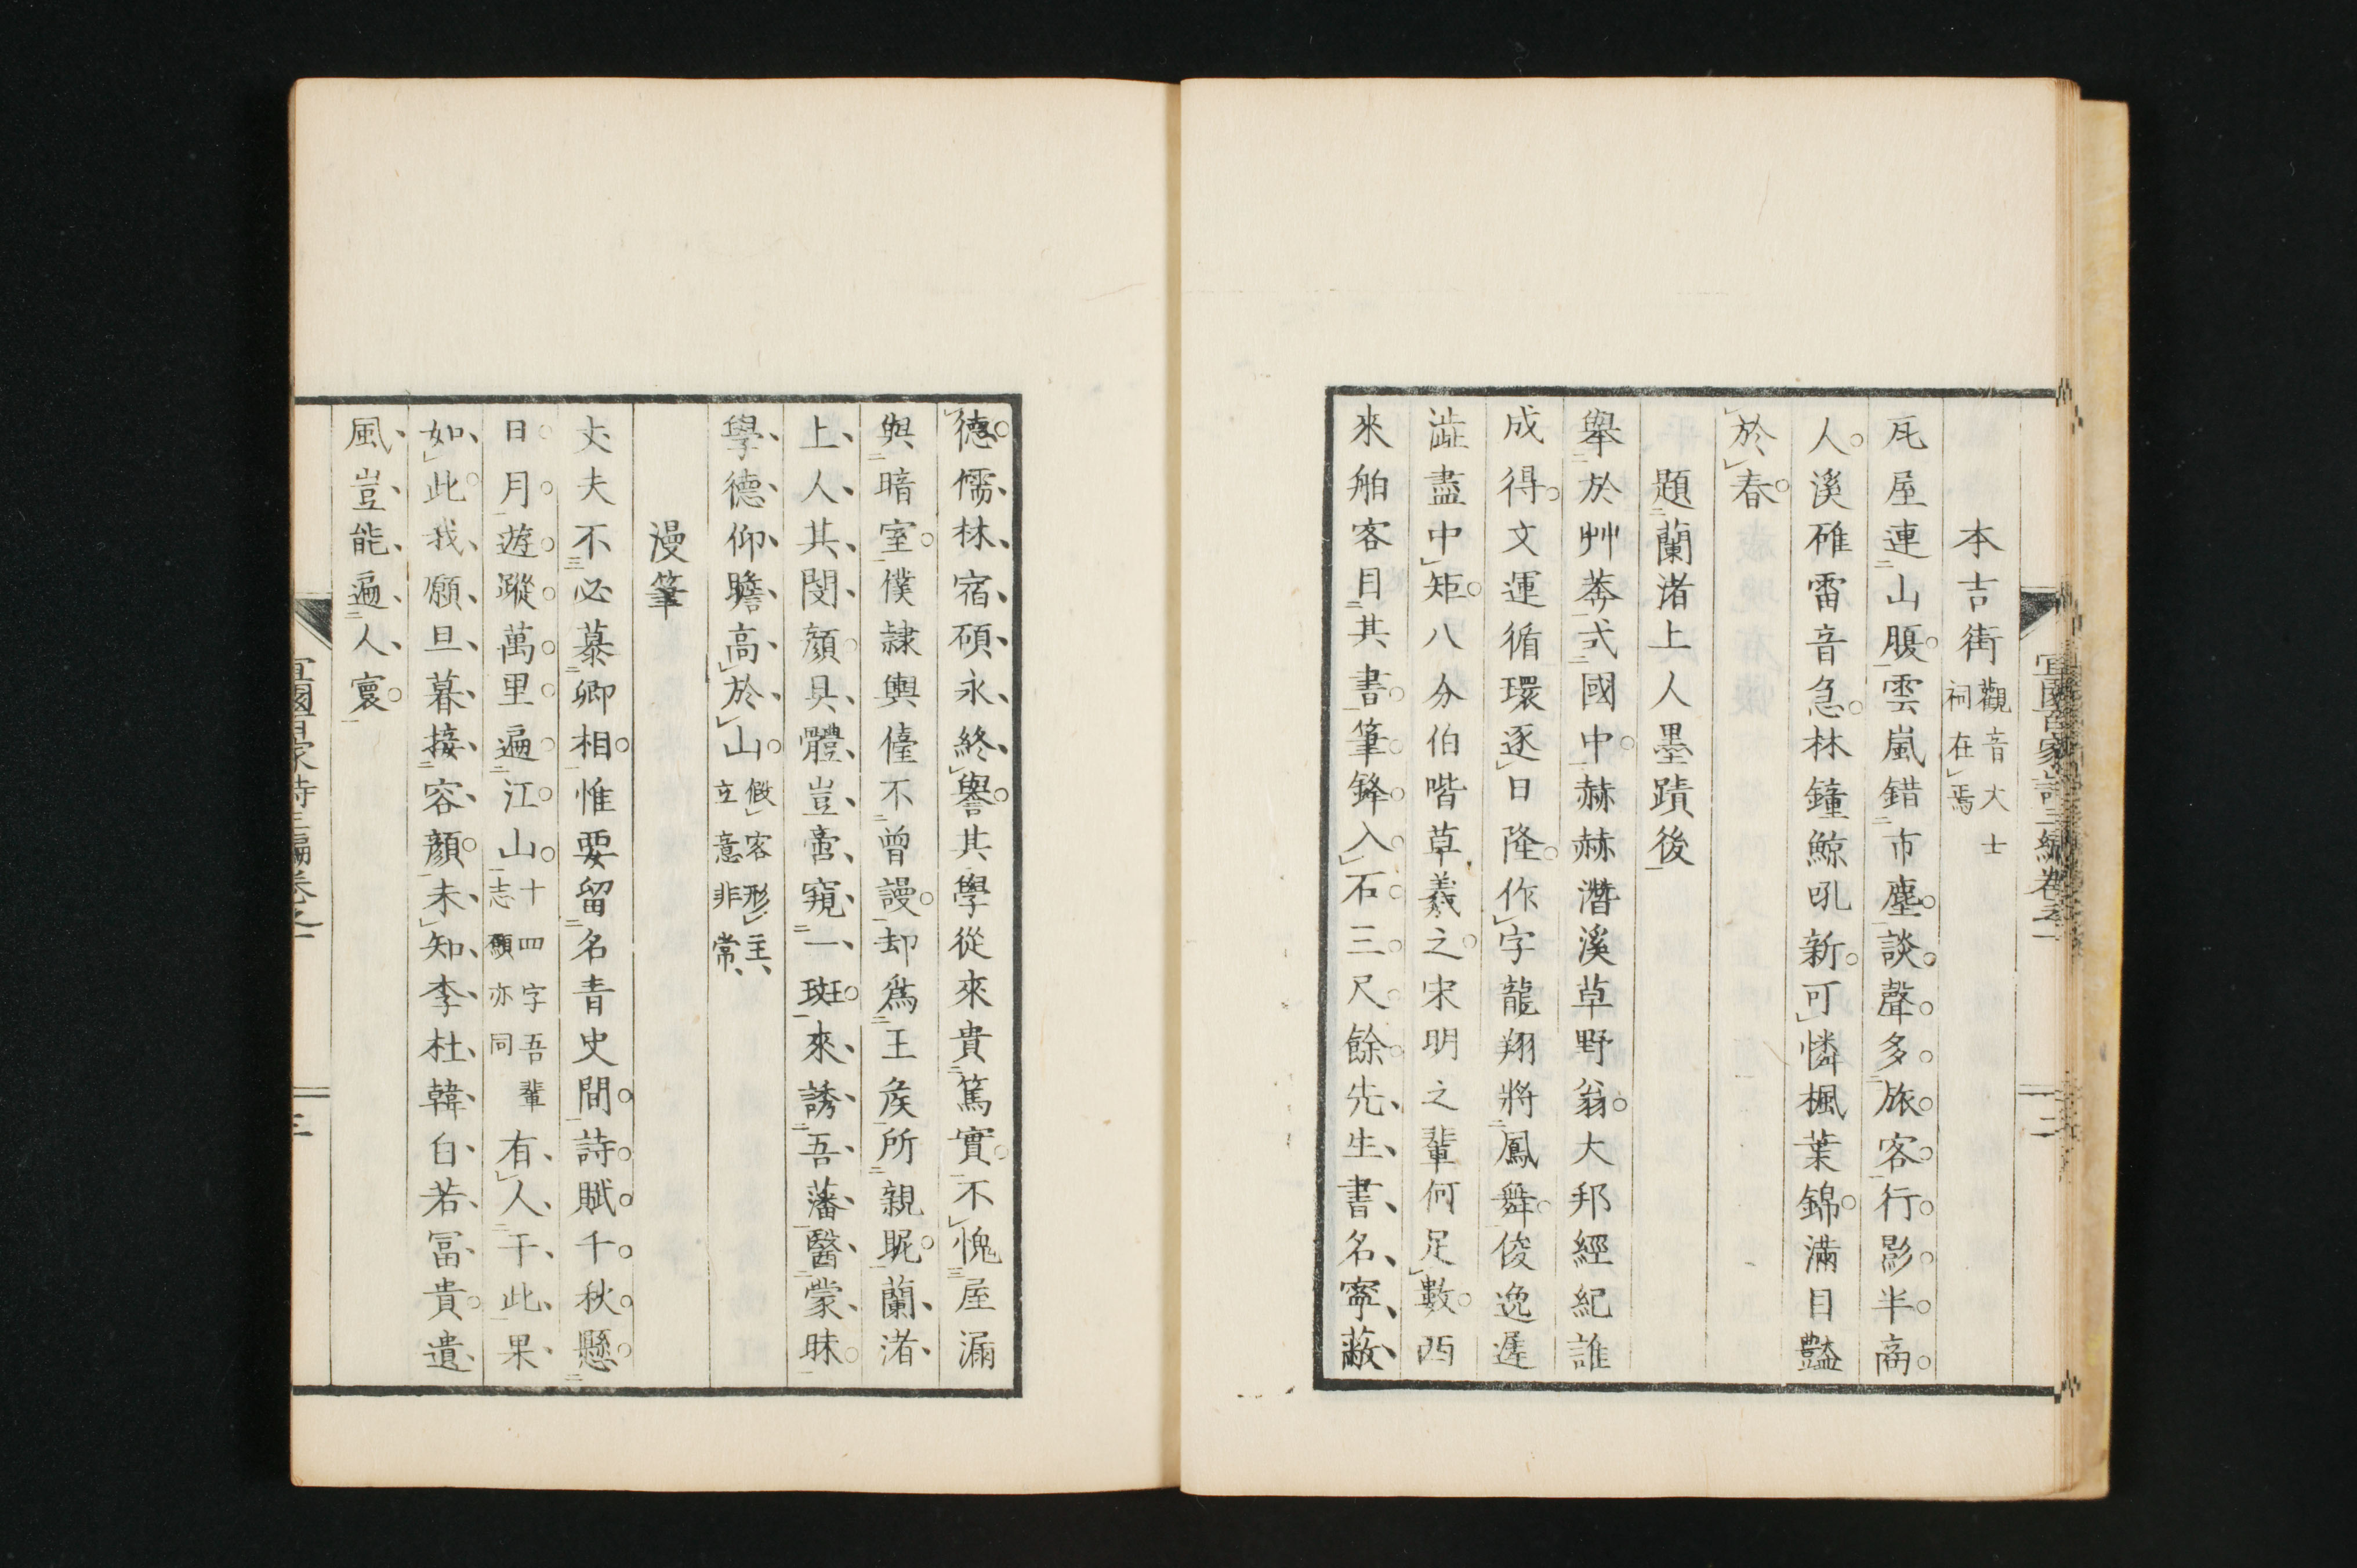 本吉街 觀音大士祠在焉
瓦屋連山腹雲嵐錯市塵談聲多旅客行影半商
人溪碓雷音急林鐘鯨吼新可憐楓葉錦滿目豔
於春
題蘭渚上人墨蹟後
舉於艸莽式國中赫赫潛溪草野翁大邦經紀誰
成得文運循環逐日隆作字龍翔將鳳舞俊逸遲
澁盡中矩八分伯喈草羲之宋明之輩何足數西
來舶客目其書筆鋒入石三尺餘先生書名寧蔽
德儒林宿碩永終譽其學從來貴篤實不愧屋漏
與暗室僕隸輿儓不曾謾却爲王矦所親昵蘭渚
上人其閔顏具體豈啻窺一斑來誘吾藩醫蒙昧
學德仰瞻高於山 假客形主立意非常
漫筆
丈夫不必慕卿相惟要留名青史間詩賦千秋懸
日月遊蹤萬里遍江山 十四字吾輩志願亦同 有人于此果
如此我願旦暮接容顏未知李杜韓白若冨貴遺
風豈能遍人寰
二
三